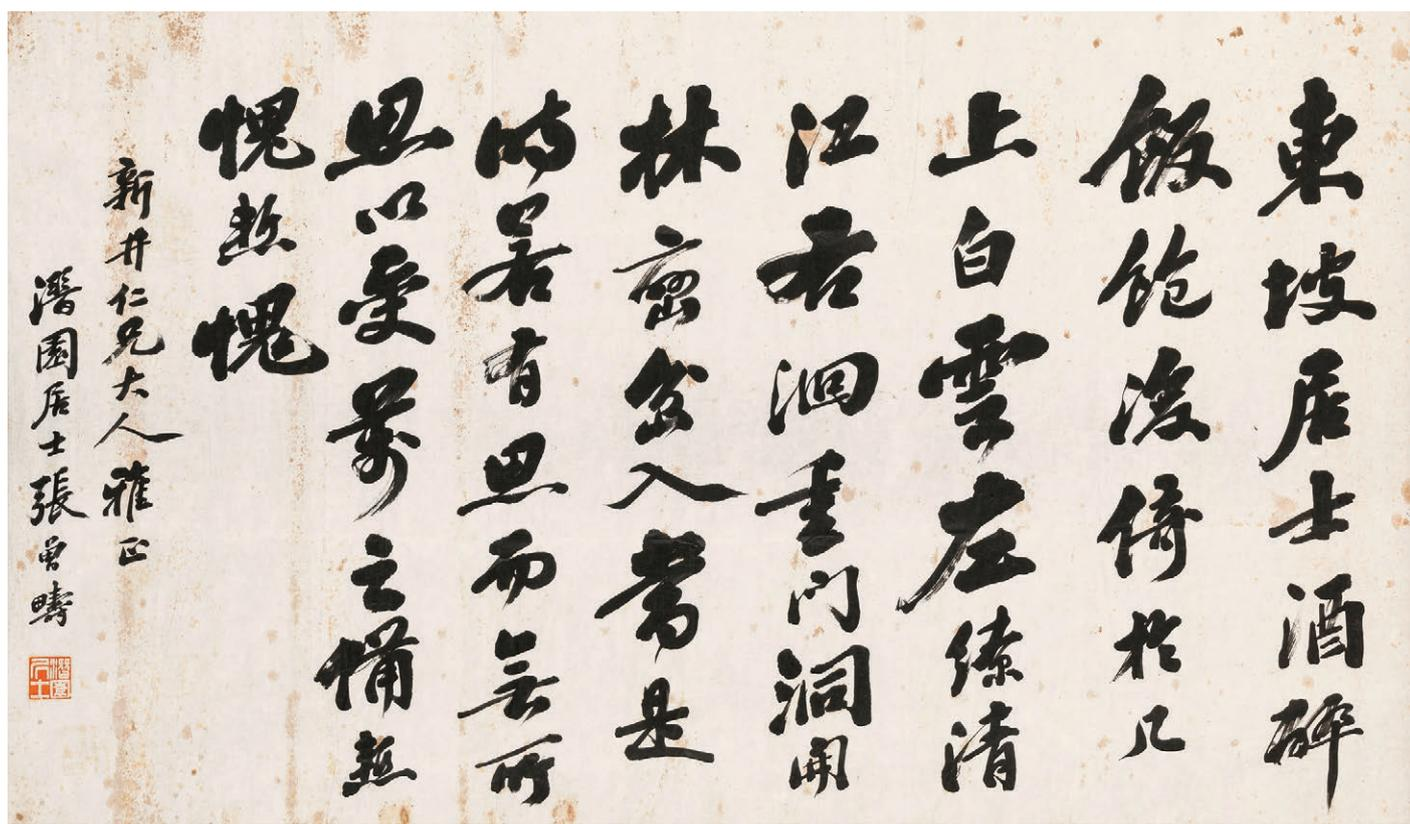 東坡居士酒醉
飯飽後倚於几
上白雲左繚清
江右洄重門洞開
林巒坌入當是
時若有思而無所
思以受萬之備慙
愧慙愧
新井仁兄大人雅正
潛園居士張曾疇
潛園居士